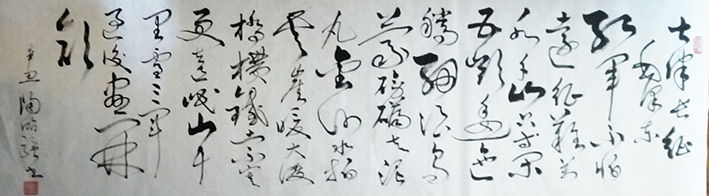 七律長征
毛澤東
紅軍不怕
遠征難萬
水千山只等閑
五嶺逶迤
騰細浪烏
蒙磅礴走泥
丸金沙水拍
雲崖暖大渡
橋橫鐵索寒
更喜岷山千
里雪三軍
過後盡開
顏
辛丑陶書